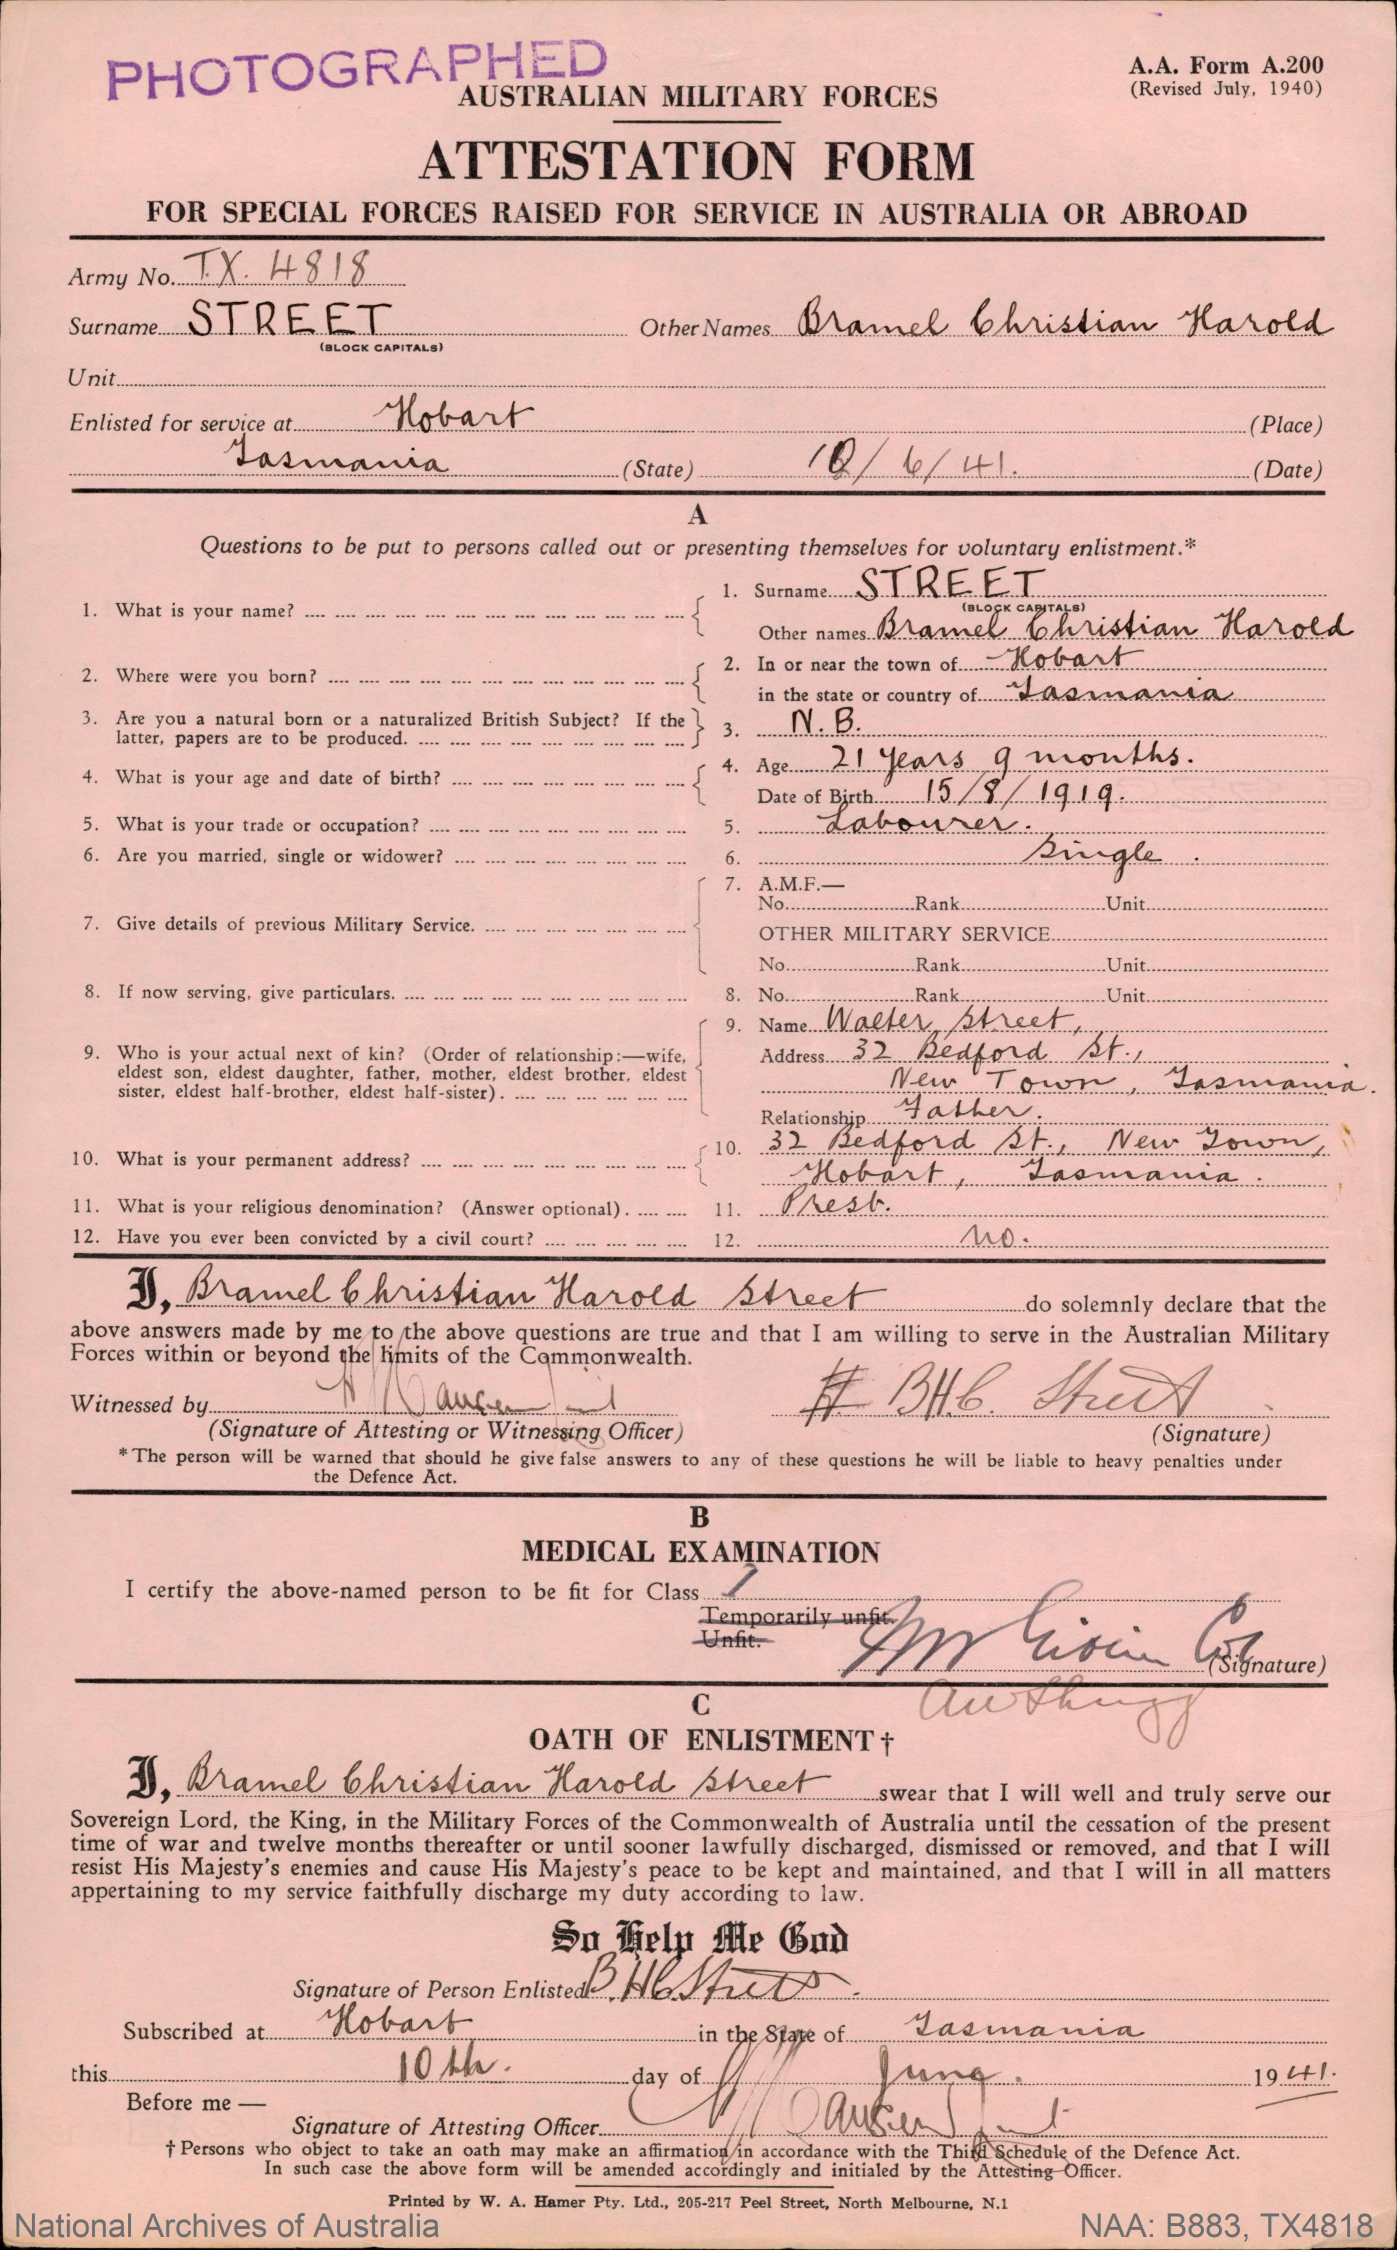 PHOTOGRAPHED
A.A. Form A.200
(Revised July, 1940)
AUSTRALIAN MILITARY FORCES
ATTESTATION FORM
FOR SPECIAL FORCES RAISED FOR SERVICE IN AUSTRALIA OR ABROAD
Army No. T.X. 4818
Surname STREET Other Names Bramel Christian Harold
(BLOCK CAPITALS)
Unit
Enlisted for service at Hobart (Place)
Tasmania (State) 10/6/41. (Date)
A
Questions to be put to persons called out or presenting themselves for voluntary enlistment.*
1. What is your name? 1. Surname STREET
(BLOCK CAPITALS)
Other names Bramel Christian Harold
2. Where were you born? 2. In or near the town of Hobart
in the state or country of Tasmania
3. Are you a natural born or a naturalized British Subject? If the
latter, papers are to be produced. 3. N.B.
4. What is your age and date of birth? 4. Age 21 years 9 months.
Date of Birth 15/8/1919.
5. What is your trade or occupation? 5. Labourer.
6. Are you married, single or widower? 6. Single.
7. Give details of previous Military Service. 7. A.M.F.—
No. Rank Unit
OTHER MILITARY SERVICE
No. Rank Unit
8. If now serving, give particulars. 8. No. Rank Unit
9. Who is your actual next of kin? (Order of relationship:—wife,
eldest son, eldest daughter, father, mother, eldest brother, eldest
sister, eldest half-brother, eldest half-sister).
9. Name Walter Street,
Address 32 Bedford St.,
New Town, Tasmania.
Relationship Father.
10. What is your permanent address? 10. 32 Bedford St., New Town,
Hobart, Tasmania.
11. What is your religious denomination? (Answer optional). 11. Presb.
12. Have you ever been convicted by a civil court? 12. No.
I, Bramel Christian Harold Street do solemnly declare that the
above answers made by me to the above questions are true and that I am willing to serve in the Australian Military
Forces within or beyond the limits of the Commonwealth.
Witnessed by B.H.C. Street
(Signature of Attesting or Witnessing Officer) (Signature)
* The person will be warned that should he give false answers to any of these questions he will be liable to heavy penalties under
the Defence Act.
B
MEDICAL EXAMINATION
I certify the above-named person to be fit for Class 1
Temporarily unfit.
Unfit.
(Signature)
C
OATH OF ENLISTMENT †
I, Bramel Christian Harold Street swear that I will well and truly serve our
Sovereign Lord, the King, in the Military Forces of the Commonwealth of Australia until the cessation of the present
time of war and twelve months thereafter or until sooner lawfully discharged, dismissed or removed, and that I will
resist His Majesty's enemies and cause His Majesty's peace to be kept and maintained, and that I will in all matters
appertaining to my service faithfully discharge my duty according to law.
So Help Me God
Signature of Person Enlisted B.H.C. Street
Subscribed at Hobart in the State of Tasmania
this 10th. day of June. 1941.
Before me —
Signature of Attesting Officer
† Persons who object to take an oath may make an affirmation in accordance with the Third Schedule of the Defence Act.
In such case the above form will be amended accordingly and initialed by the Attesting Officer.
Printed by W. A. Hamer Pty. Ltd., 205-217 Peel Street, North Melbourne, N.1
National Archives of Australia NAA: B883, TX4818